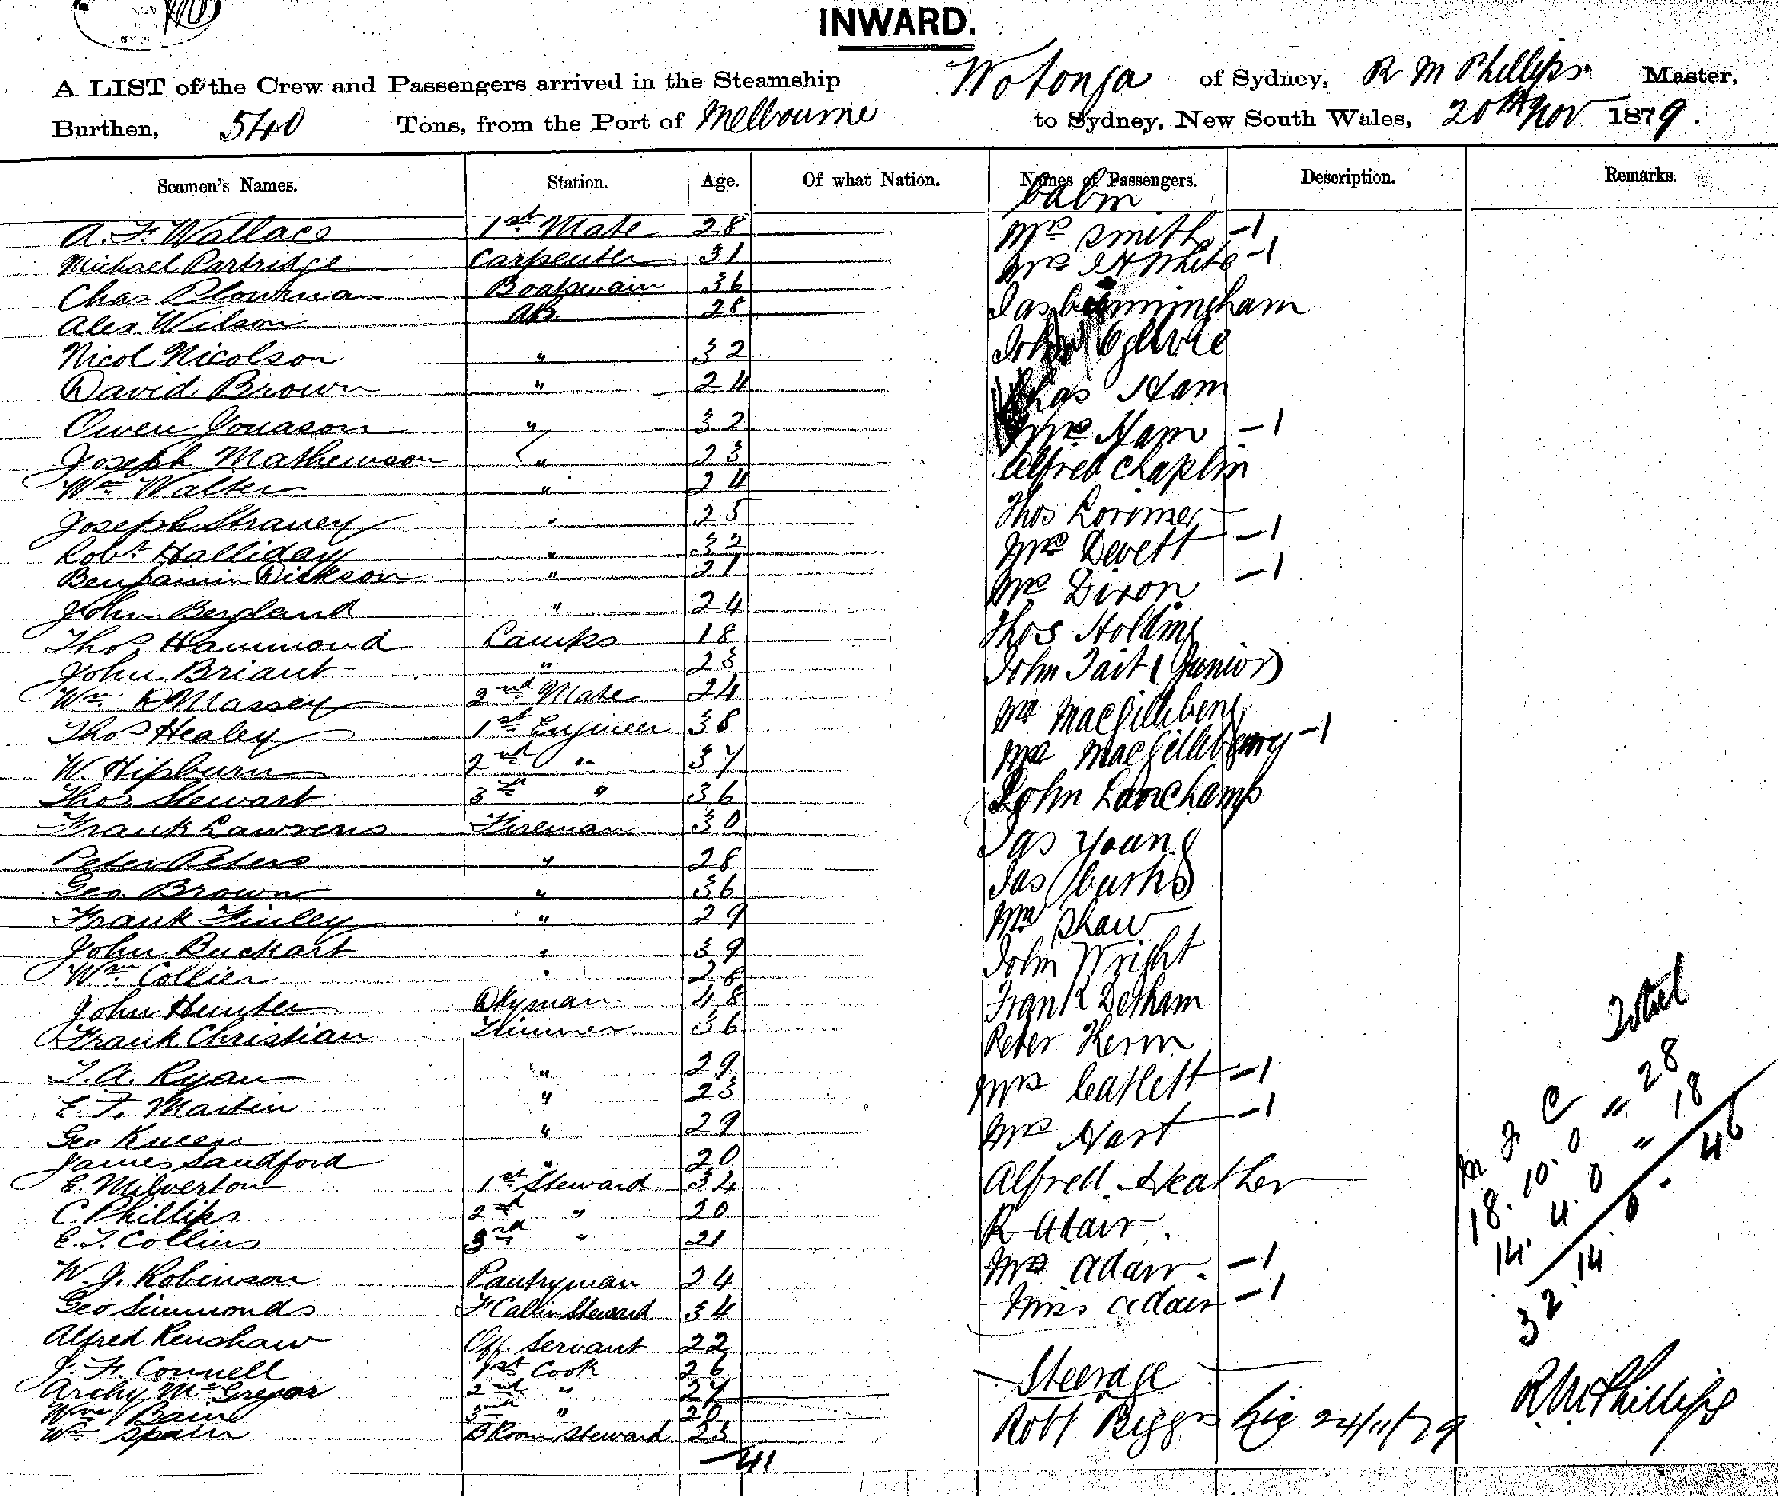 INWARD.
A LIST of the Crew and Passengers arrived in the Steamship Wotonga of Sydney, R M Phillips Master,
Burthen, 540 Tons, from the Port of Melbourne to Sydney, New South Wales, 20th Nov 1879.
Seamen's Names. Station. Age. Of what Nation. Names of Passengers. Description. Remarks.
Cabin
A. F. Wallace 1st Mate 28 Mrs Smith - 1
Michael Partridge Carpenter 31 Mrs White - 1
Chas Boatswain 36 Jas Cunningham
Alex Wilson AB 28 John Ogilvie
Nicol Nicolson " 32
David Brown " 24 Chas Ham
Owen Jonason " 32 Mrs Ham - 1
Joseph Mathewson " 23 Alfred Chaplin
Wm Walter " 24
Joseph Straney " 25 Thos Lorimer
Robt Halliday " 32 Mrs Devett - 1
Benjamin Dickson " 21 Mrs Dixon - 1
John Bergland " 24
Thos Hammond Lamps 18 Thos Holding
John Briant " 23 John Tait (Junior)
Wm Massey 2nd Mate 24 Mr
Thos Healey 1st Engineer 38 Mrs - 1
W. Hipburn 2nd " 37
Thos Stewart 3rd " 36 John Lanchamp
Frank Lawrens Fireman 30 Jas Young
Peter Peters " 28
Geo Brown " 36 Jas
Frank Finley " 29 Mr Shaw
John Buckart " 39 John Wright
Wm Collier " 28
John Hunter Dkyman 48 Frank Detham
Frank Christian Trimmer 36 Peter Kerin
T. A. Ryan " 29 Mrs Catlett - 1
E. F. Martin " 23
Geo " 29 Mrs Hart - 1
James Sandford " 20
E. Milverton 1st Steward 34 Alfred Heather
C. Phillips 2nd " 20 R Adair
E. T. Collins 3rd " 21
W. J. Robinson Pantryman 24 Mrs Adair - 1
Geo Simmonds F Cabin Steward 34 Miss Adair - 1
Alfred Renshaw Off Servant 22
J. F. Connell 1st Cook 26 Steerage
Archy McGregor 2nd " 27
Wm Bain 3rd " 29 Robt Biggs 24/11/79
Wm Spain B Room Steward 23
41
Total
M F C
18. 10. 0 " 28
14. 4. 0 " 18
32. 14. 0. 46
R. M. Phillips